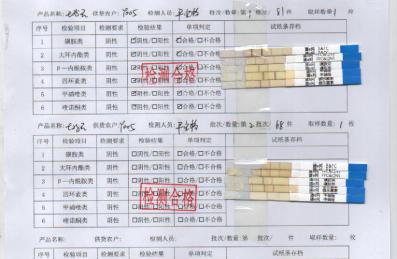 产品名称: 供货农户: 检测人员: 批次/数量:第 批次/ 件 取样数量: 枚
序号 检验项目 检测要求 检验结果 单项判定 试纸条存档
1 磺胺类 阴性 ☑阴性/☐阳性 ☑合格/☐不合格
2 大环内酯类 阴性 ☑阴性/☐阳性 ☑合格/☐不合格
3 β-内酰胺类 阴性 ☑阴性/☐阳性 ☑合格/☐不合格
4 四环素类 阴性 ☑阴性/☐阳性 ☑合格/☐不合格
5 甲硝唑类 阴性 ☑阴性/☐阳性 ☑合格/☐不合格
6 喹诺酮类 阴性 ☑阴性/☐阳性 ☑合格/☐不合格
检测合格
产品名称: 供货农户: 检测人员: 批次/数量:第2批次/ 68 件 取样数量: 1 枚
序号 检验项目 检测要求 检验结果 单项判定 试纸条存档
1 磺胺类 阴性 ☐阴性/☐阳性 ☐合格/☐不合格
2 大环内酯类 阴性 ☐阴性/☐阳性 ☐合格/☐不合格
3 β-内酰胺类 阴性 ☐阴性/☐阳性 ☐合格/☐不合格
4 四环素类 阴性 ☐阴性/☐阳性 ☐合格/☐不合格
5 甲硝唑类 阴性 ☐阴性/☐阳性 ☐合格/☐不合格
6 喹诺酮类 阴性 ☐阴性/☐阳性 ☐合格/☐不合格
检测合格
产品名称: 供货农户: 检测人员: 批次/数量:第 批次/ 件 取样数量: 枚
序号 检验项目 检测要求 检验结果 单项判定 试纸条存档